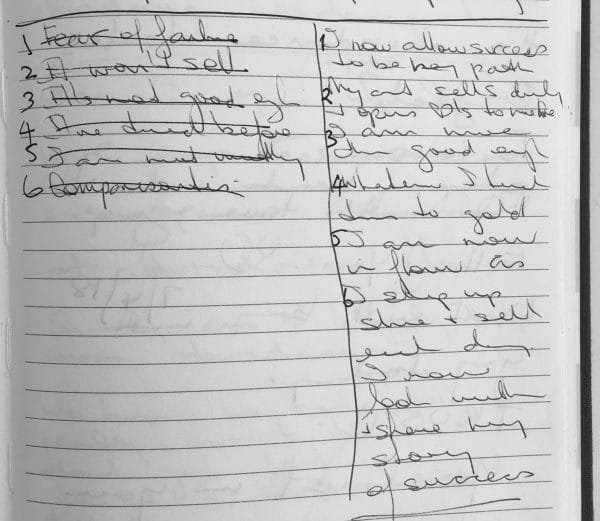 1 Fear of failure
2 It won't sell
3 Its not good egh
4 I've tried before
5 I am not worthy
6 Comparisonitis
1 I now allow success
to be my path
2 My art sells daily
& opens to
3 I am more
than good egh
4 Whatever I touch
turns to gold
5 I am now
in flow as
6 I step up
shine + sell
each day
I now
look
+ share my
story
of success